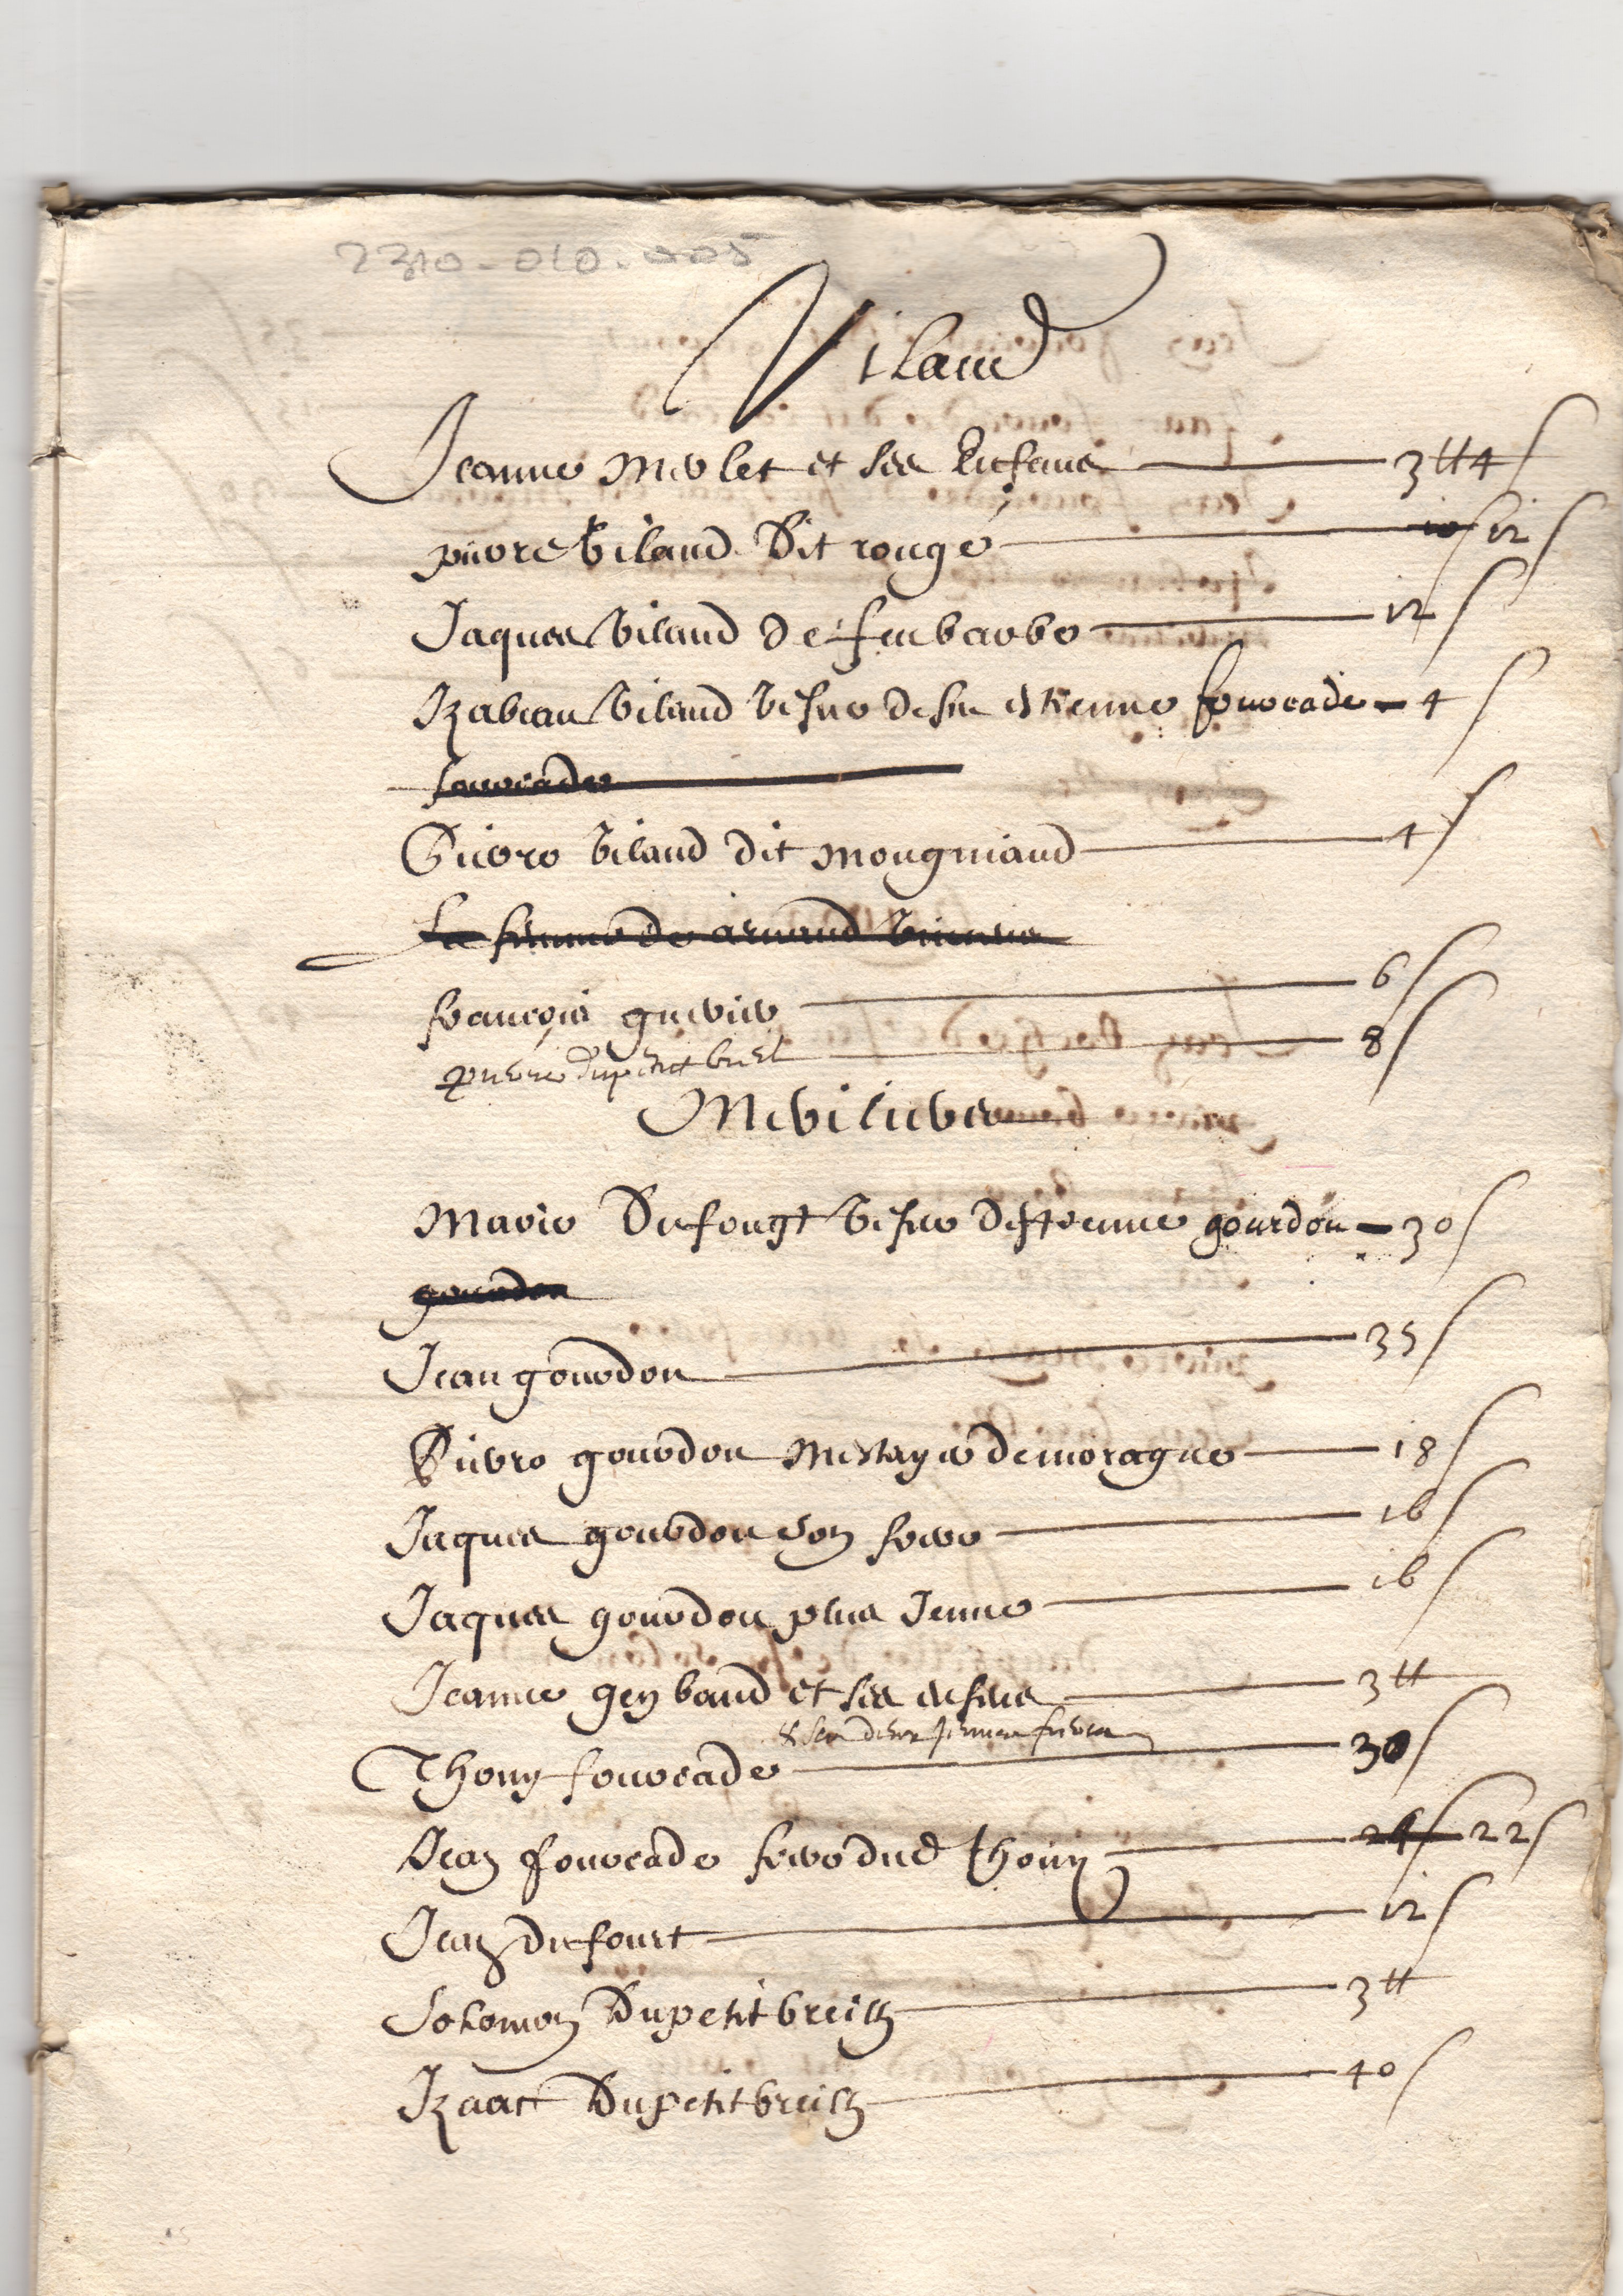 2310-010-005
Vilaud
Jeanne Merlet et ses Enfans 3 ₶ 4 s
pierre Vilaud Dit rougé 10 s 12 s
Jaques Vilaud de feu barbe 12 s
Izabeau Vilaud Vefve de feu estienne fourcade 4 s
fourcade
Pierre Vilaud dit mougniaud 4 s
La femme de arnaud
françois guerier 6 s
pierre dupetit breil 8 s
Meviliers
Marie Dufougt Vefve destienne gourdon 30 s
gourdon
Jean gourdon 35 s
Pierre gourdon Mestayer de moragne 18 s
Jaques gourdon son frere 16 s
Jaques gourdon plus Jeune 16 s
Jeanne geybaud et ses enfens 3 ₶
& ses deux Jeunes freres
Thony fourcade 30 s
Jean fourcade frere dud thony 24 s 22 s
Jean dufourt 12 s
Solomon Dupetit breilh 3 ₶
Izaac Dupetit breilh 40 s